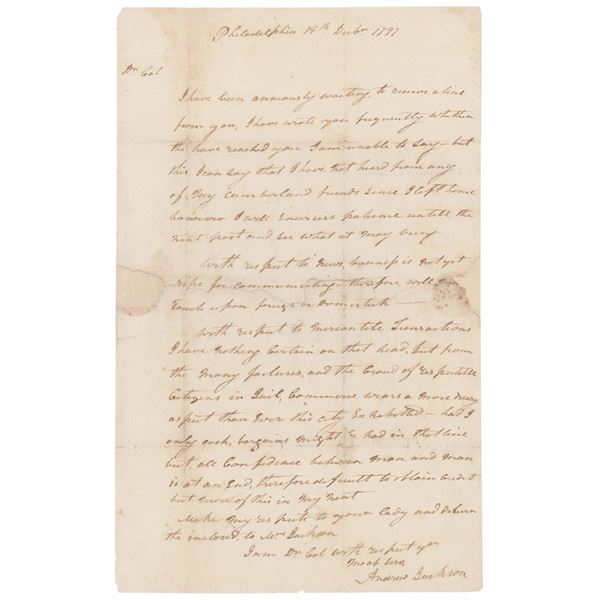 Philadelphia 18th Decbr 1797
Dr Col
I have been anxiously waiting to receive a line
from you, I have wrote you frequently whether
the have reached you I am unable to say – but
this I can say that I have not heard from any
of my Cumberland friends since I left home
however I will Exercise patience untill the
next post and see what it may bring
With respect to news, business is not yet
ripe for communicating therefore will not
touch upon foreign or Domestick –
With respect to Mercantile Transactions
I have nothing Certain on that head, but from
the many failures, and the Croud of respectable
Citizens in Jail, Commerce wears a more dreary
aspect than Ever this city Exhibited – had I
only cash, bargains might be had in that line
but, all Confidence between man and man
is at an End, therefore difficult to obtain credit
but more of this in my next
Make my respects to your Lady and deliver
the inclosed to Mrs Jackson
I am Dr Col with respect yr
Mo ob Serv
Andrew Jackson